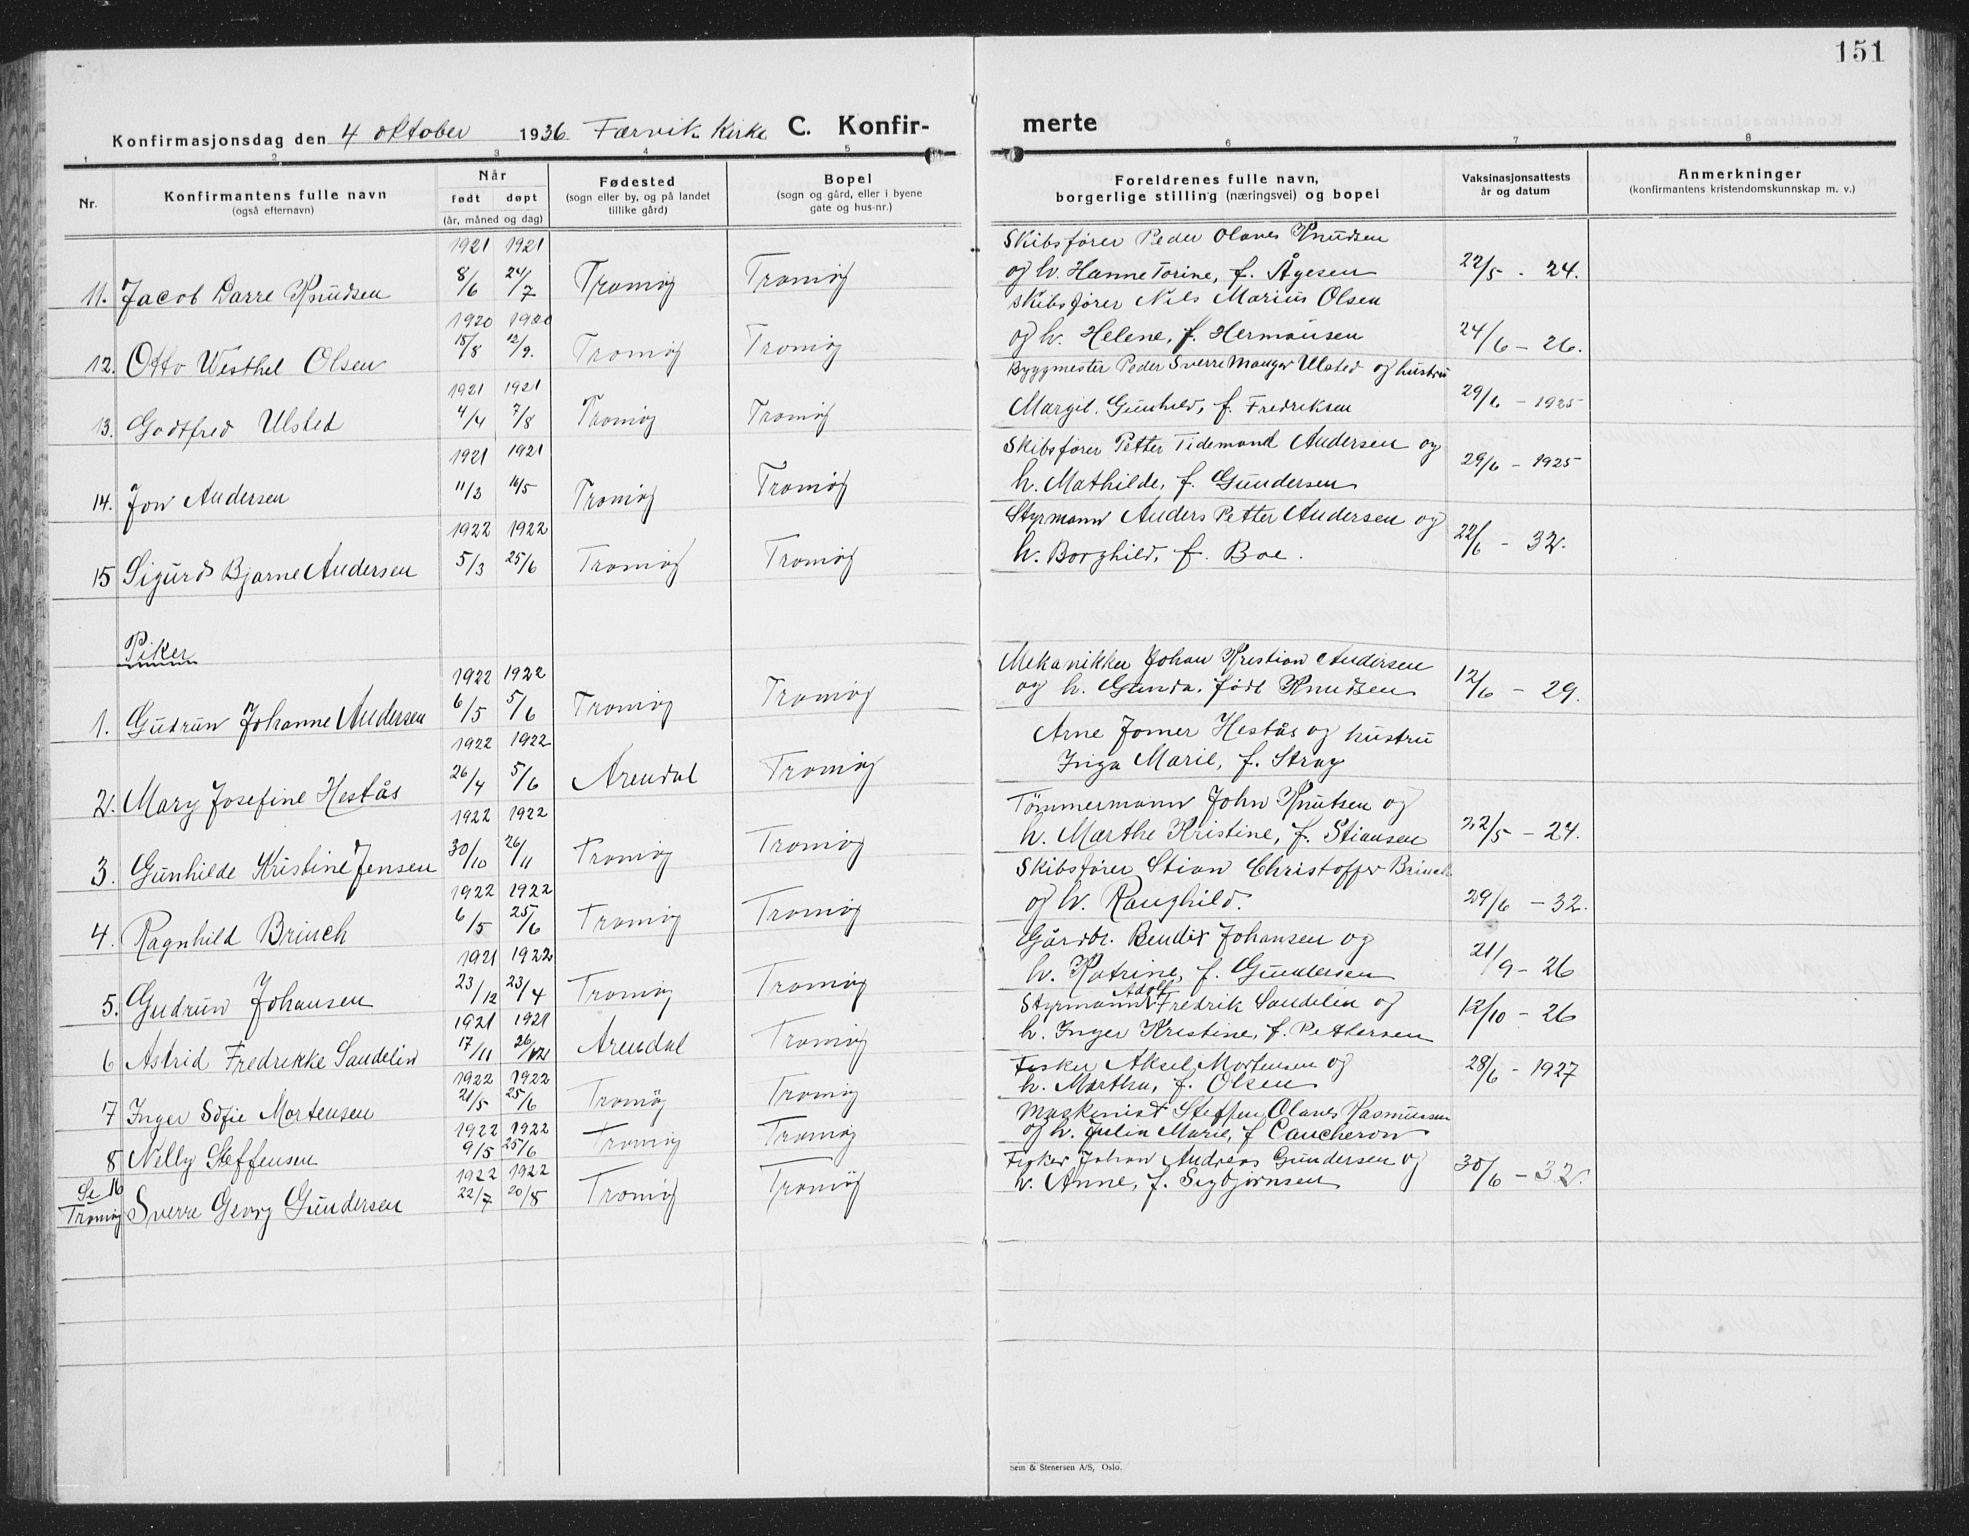 151
Konfirmasjonsdag den 4 oktober 1936 Færvik Kirke C. Konfir-
merte
1 2 3 4 5
6 7 8
Nr.
Konfirmantens fulle navn
(også efternavn)
Når
født døpt
(år, måned og dag)
Fødested
(sogn eller by, og på landet
tillike gård)
Bopel
(sogn og gård, eller i byene
gate og hus-nr.)
Foreldrenes fulle navn,
borgerlige stilling (næringsvei) og bopel
Vaksinasjonsattests
år og datum
Anmerkninger
(konfirmantens kristendomskunnskap m. v.)
1921 1921
11. Jacob Darre Knudsen 8/6 24/7 Tromøy Tromøy
Skibsfører Peder Olaves Knudsen
og h. Hanne Torine, f. Ågesen 22/5 - 24.
1920 1920
12. Otto Westhel Olsen 15/8 12/9. Tromøy Tromøy
Skibsfører Nils Marius Olsen
og h. Helene, f. Hermansen 24/6 - 26.
1921 1921
13. Godtfred Ulsted 4/4 7/8 Tromøy Tromøy
Byggmester Peder Sverre Manger Ulsted og hustru
Margit. Gunhild, f. Fredriksen 29/6 - 1925
1921 1921
14. Jon Andersen 11/3 16/5 Tromøy Tromøy
Skibsfører Petter Tidemand Andersen og
h. Mathilde, f. Gundersen 29/6 - 1925
1922 1922
15 Sigurd Bjarne Andersen 5/3 25/6 Tromøy Tromøy
Styrmann Anders Petter Andersen og
h. Borghild, f. Boe. 22/6 - 32.
Piker
1922 1922
1. Gudrun Johanne Andersen 6/5 5/6 Tromøy Tromøy
Mekanikker Johan Kristian Andersen
og h. Gunda, født Knudsen 12/6 - 29.
1922 1922
2. Mary Josefine Hestås 26/4 5/6 Arendal Tromøy
Arne Jomer Hestås og hustru
Inga Marie, f. Stray
1922 1922
3. Gunhilde Kristine Jensen 30/10 26/11 Tromøy Tromøy
Tømmermann John Knutsen og
h. Marthe Kristine, f. Stiansen 22/5 - 24.
1922 1922
4. Ragnhild Brinch 6/5 25/6 Tromøy Tromøy
Skibsfører Stian Christoffer Brinch
og h. Ranghild. 29/6 - 32.
1921 1922
5. Gudrun Johansen 23/12 23/4 Tromøy Tromøy
Gårdbr. Bendix Johansen og
h. Katrine, f. Gundersen 21/9 - 26
1921 1921
6 Astrid Fredrikke Sandelin 17/11 26/12 Arendal Tromøy
Styrmann Adolf Fredrik Sandelin og
h. Inger Kristine, f. Pettersen 12/10 - 26
1922 1922
7 Inger Sofie Mortensen 21/5 25/6 Tromøy Tromøy
Fisker Aksel Mortensen og
h. Martha, f. Olsen 28/6 - 1927
1922 1922
8 Nelly Steffensen 9/5 25/6 Tromøy Tromøy
Maskinist Steffen Olaves Rasmussen
og h. Julia Marie, f Caucheron
1922 1922
Se 16
Tromøy Sverre Georg Gundersen 22/7 20/8 Tromøy Tromøy
Fisker Johan Andreas Gundersen og
h. Anne, f. Sigbjørnsen 30/6 - 32.
Sem & Stenersen A/S, Oslo.